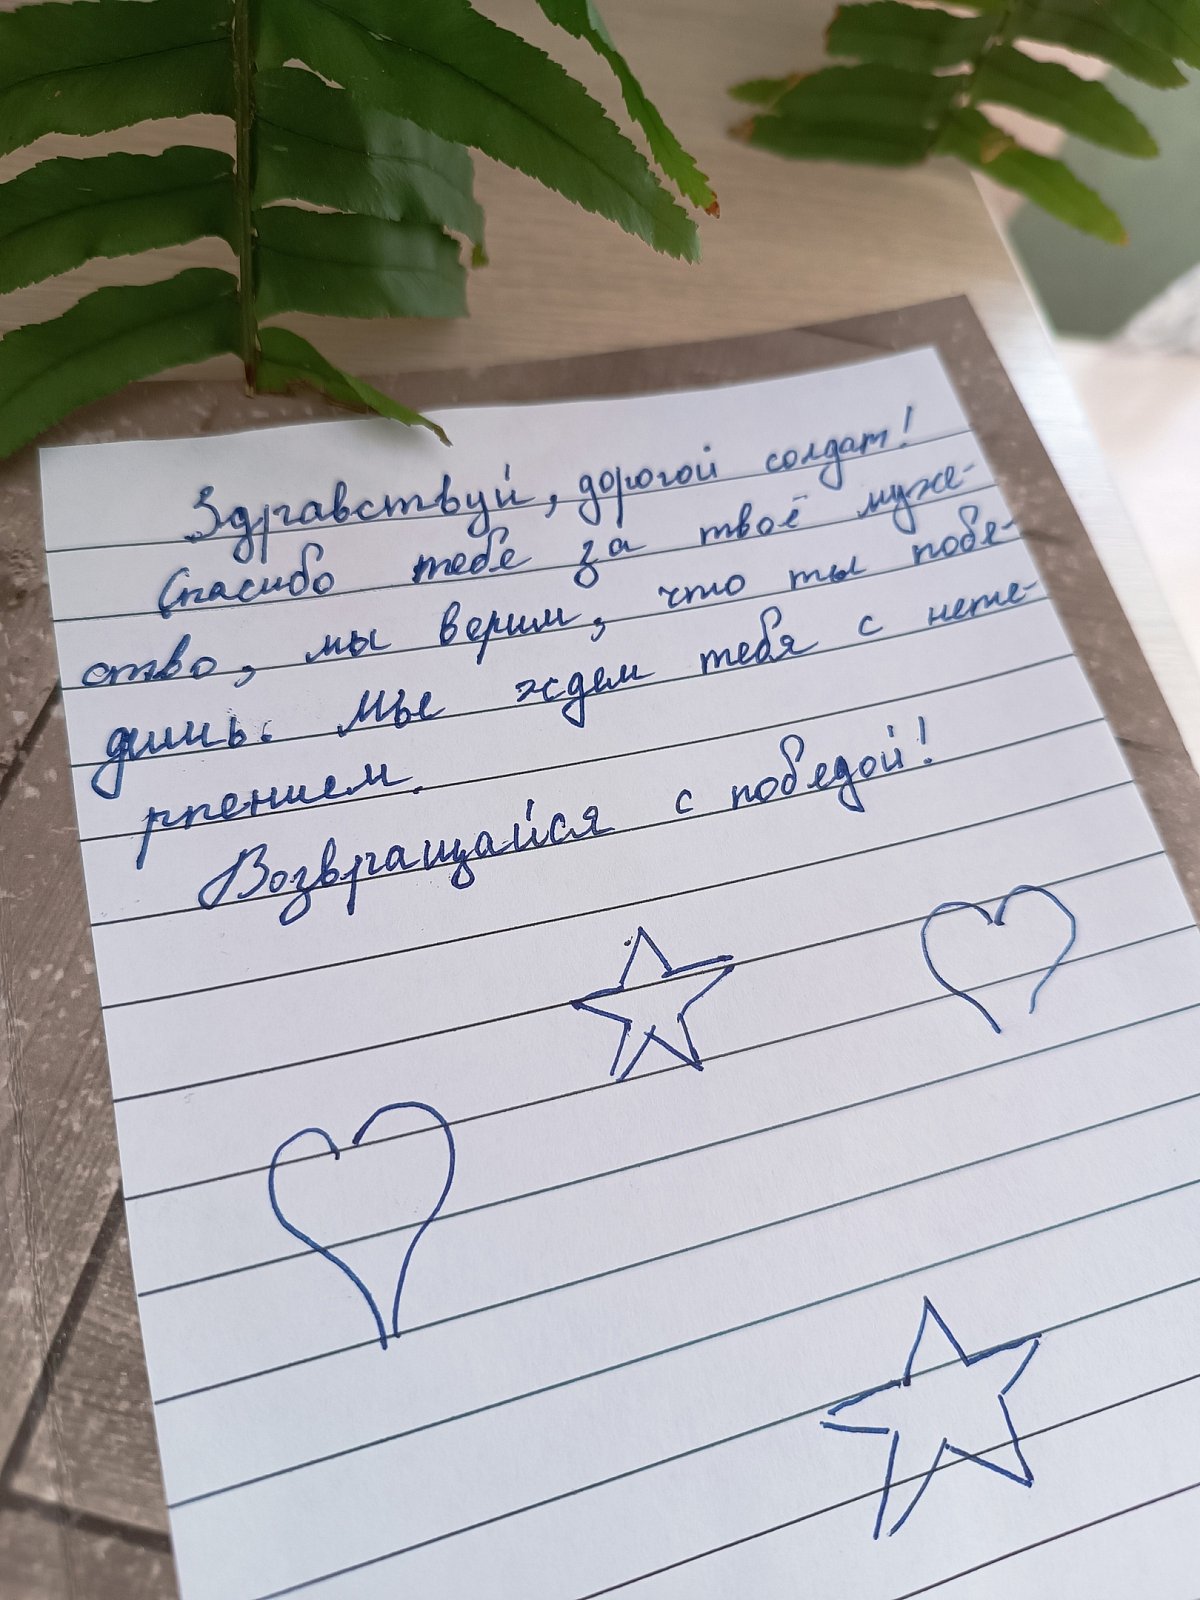 Здравствуй, дорогой солдат!
Спасибо тебе за твоё муже-
ство, мы верим, что ты побе-
дишь. Мы ждем тебя с нете-
рпением.
Возвращайся с победой!